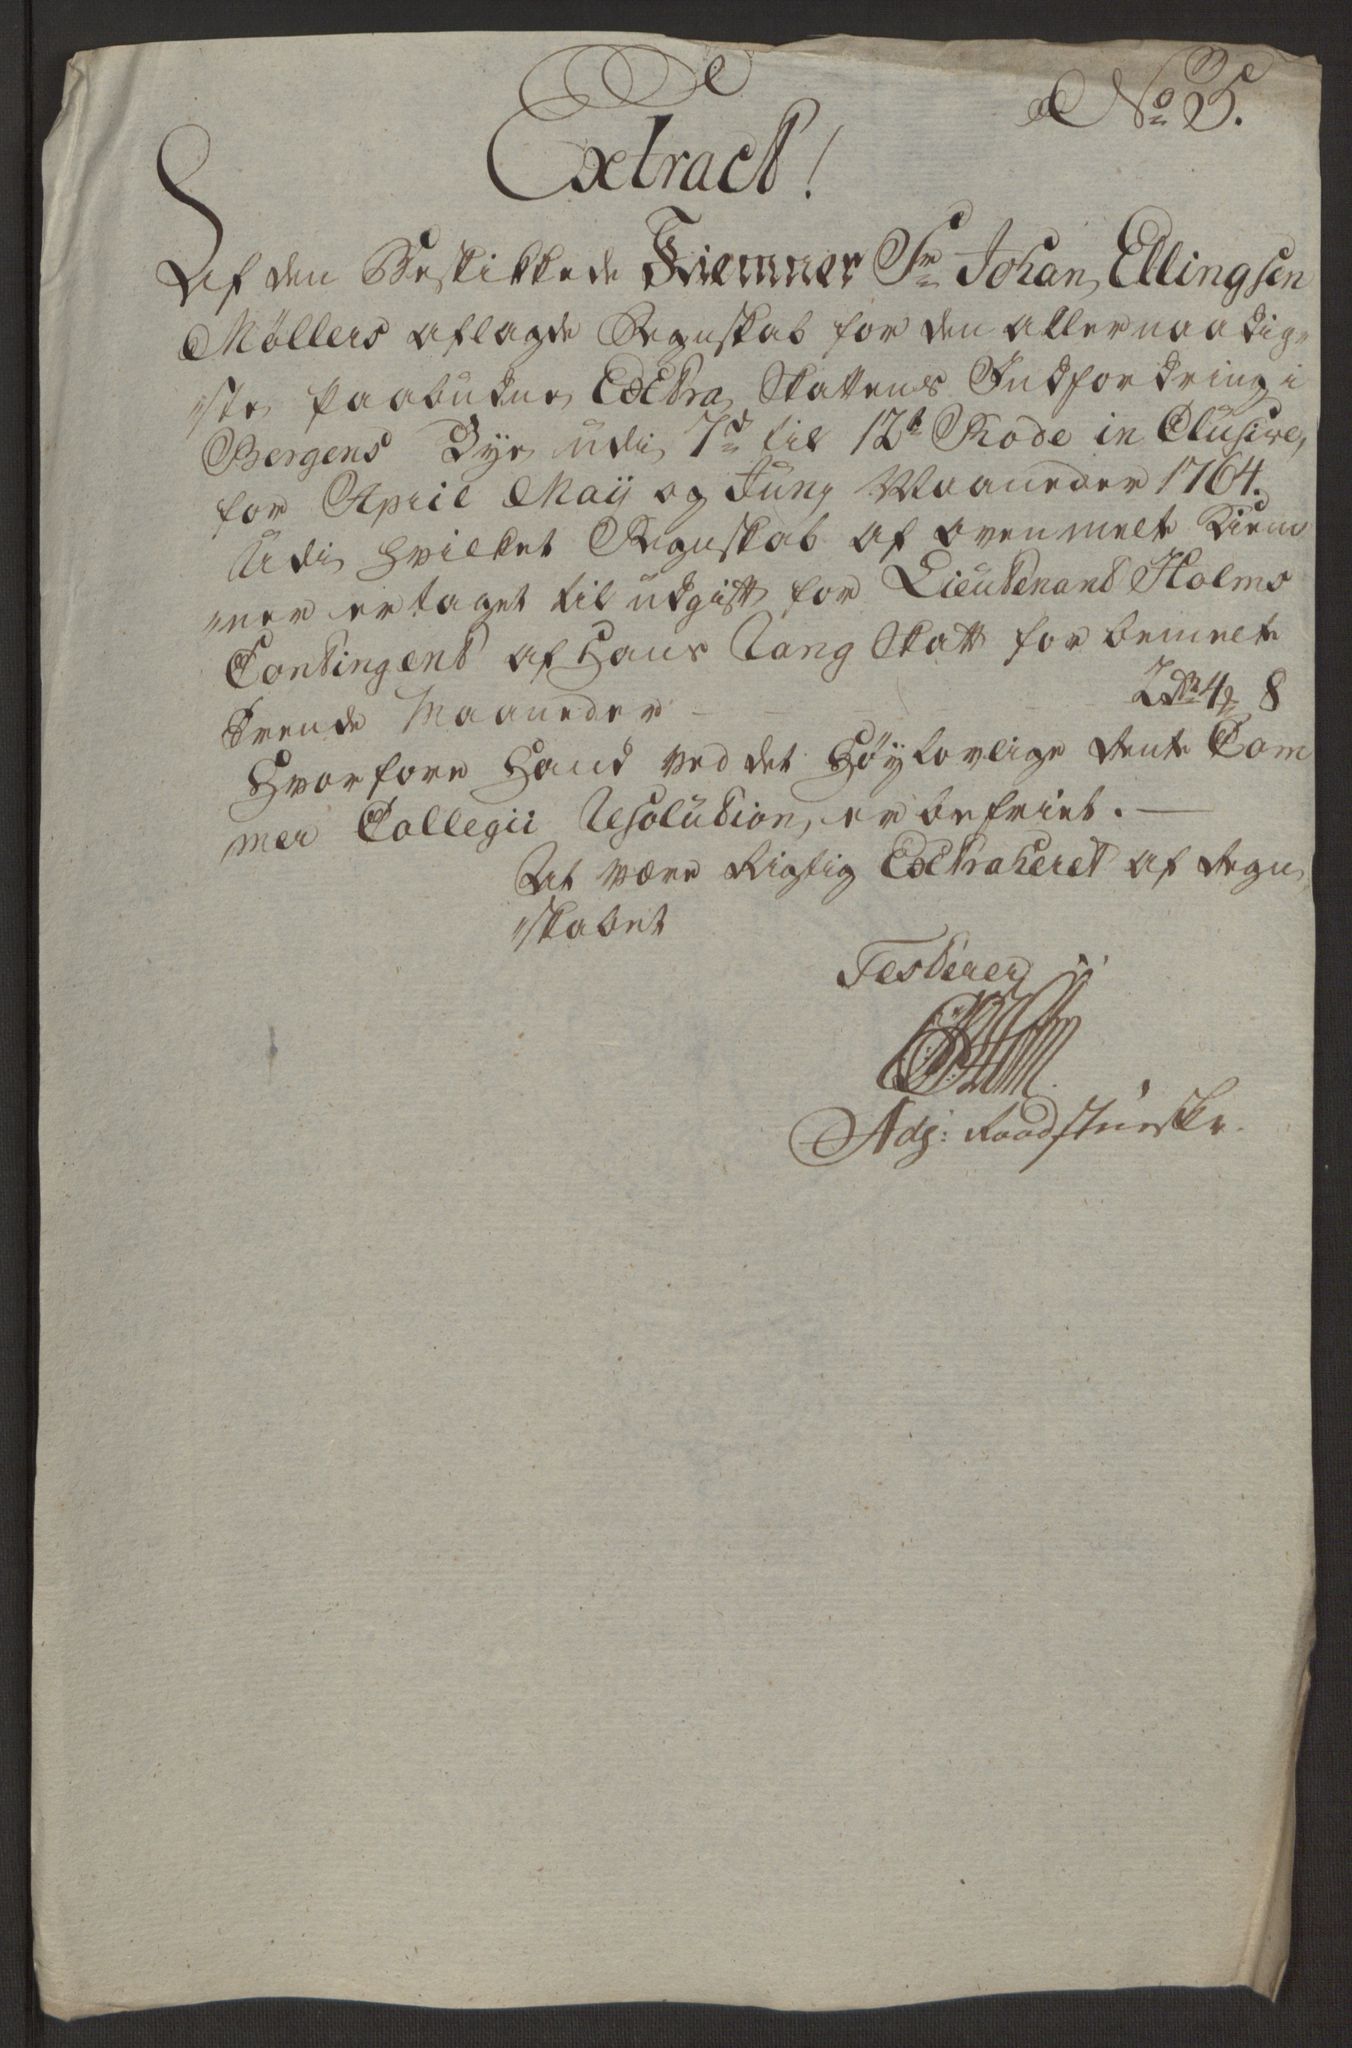 No 25.
Extract!
Af den Beskikkede Kiemner Sr Johan Ellingsen
Møllers aflagde Regnskab for den allernaadig-
ste paabudne Extra Skattens Indfordring i
Bergens Bye udi 7d til 12t Rode in Clusive,
for April Maij og Juny Maaneder 1764.
Udi hvilket Regnskab af ovenmelte Kiem-
ner er taget til udgift for Lieutenant Holms
Contingent af Hans Rang Skatt for bemelte
Trende Maaneder - - - 2 Rd 4 8
Hvorfore Hand ved det Høylovlige Rente Cam
mer Collegii Resolution, er befriet.
At være Rigtig Extraheret af Regn-
skabet
Testerer
Adj: Raadstueskr.